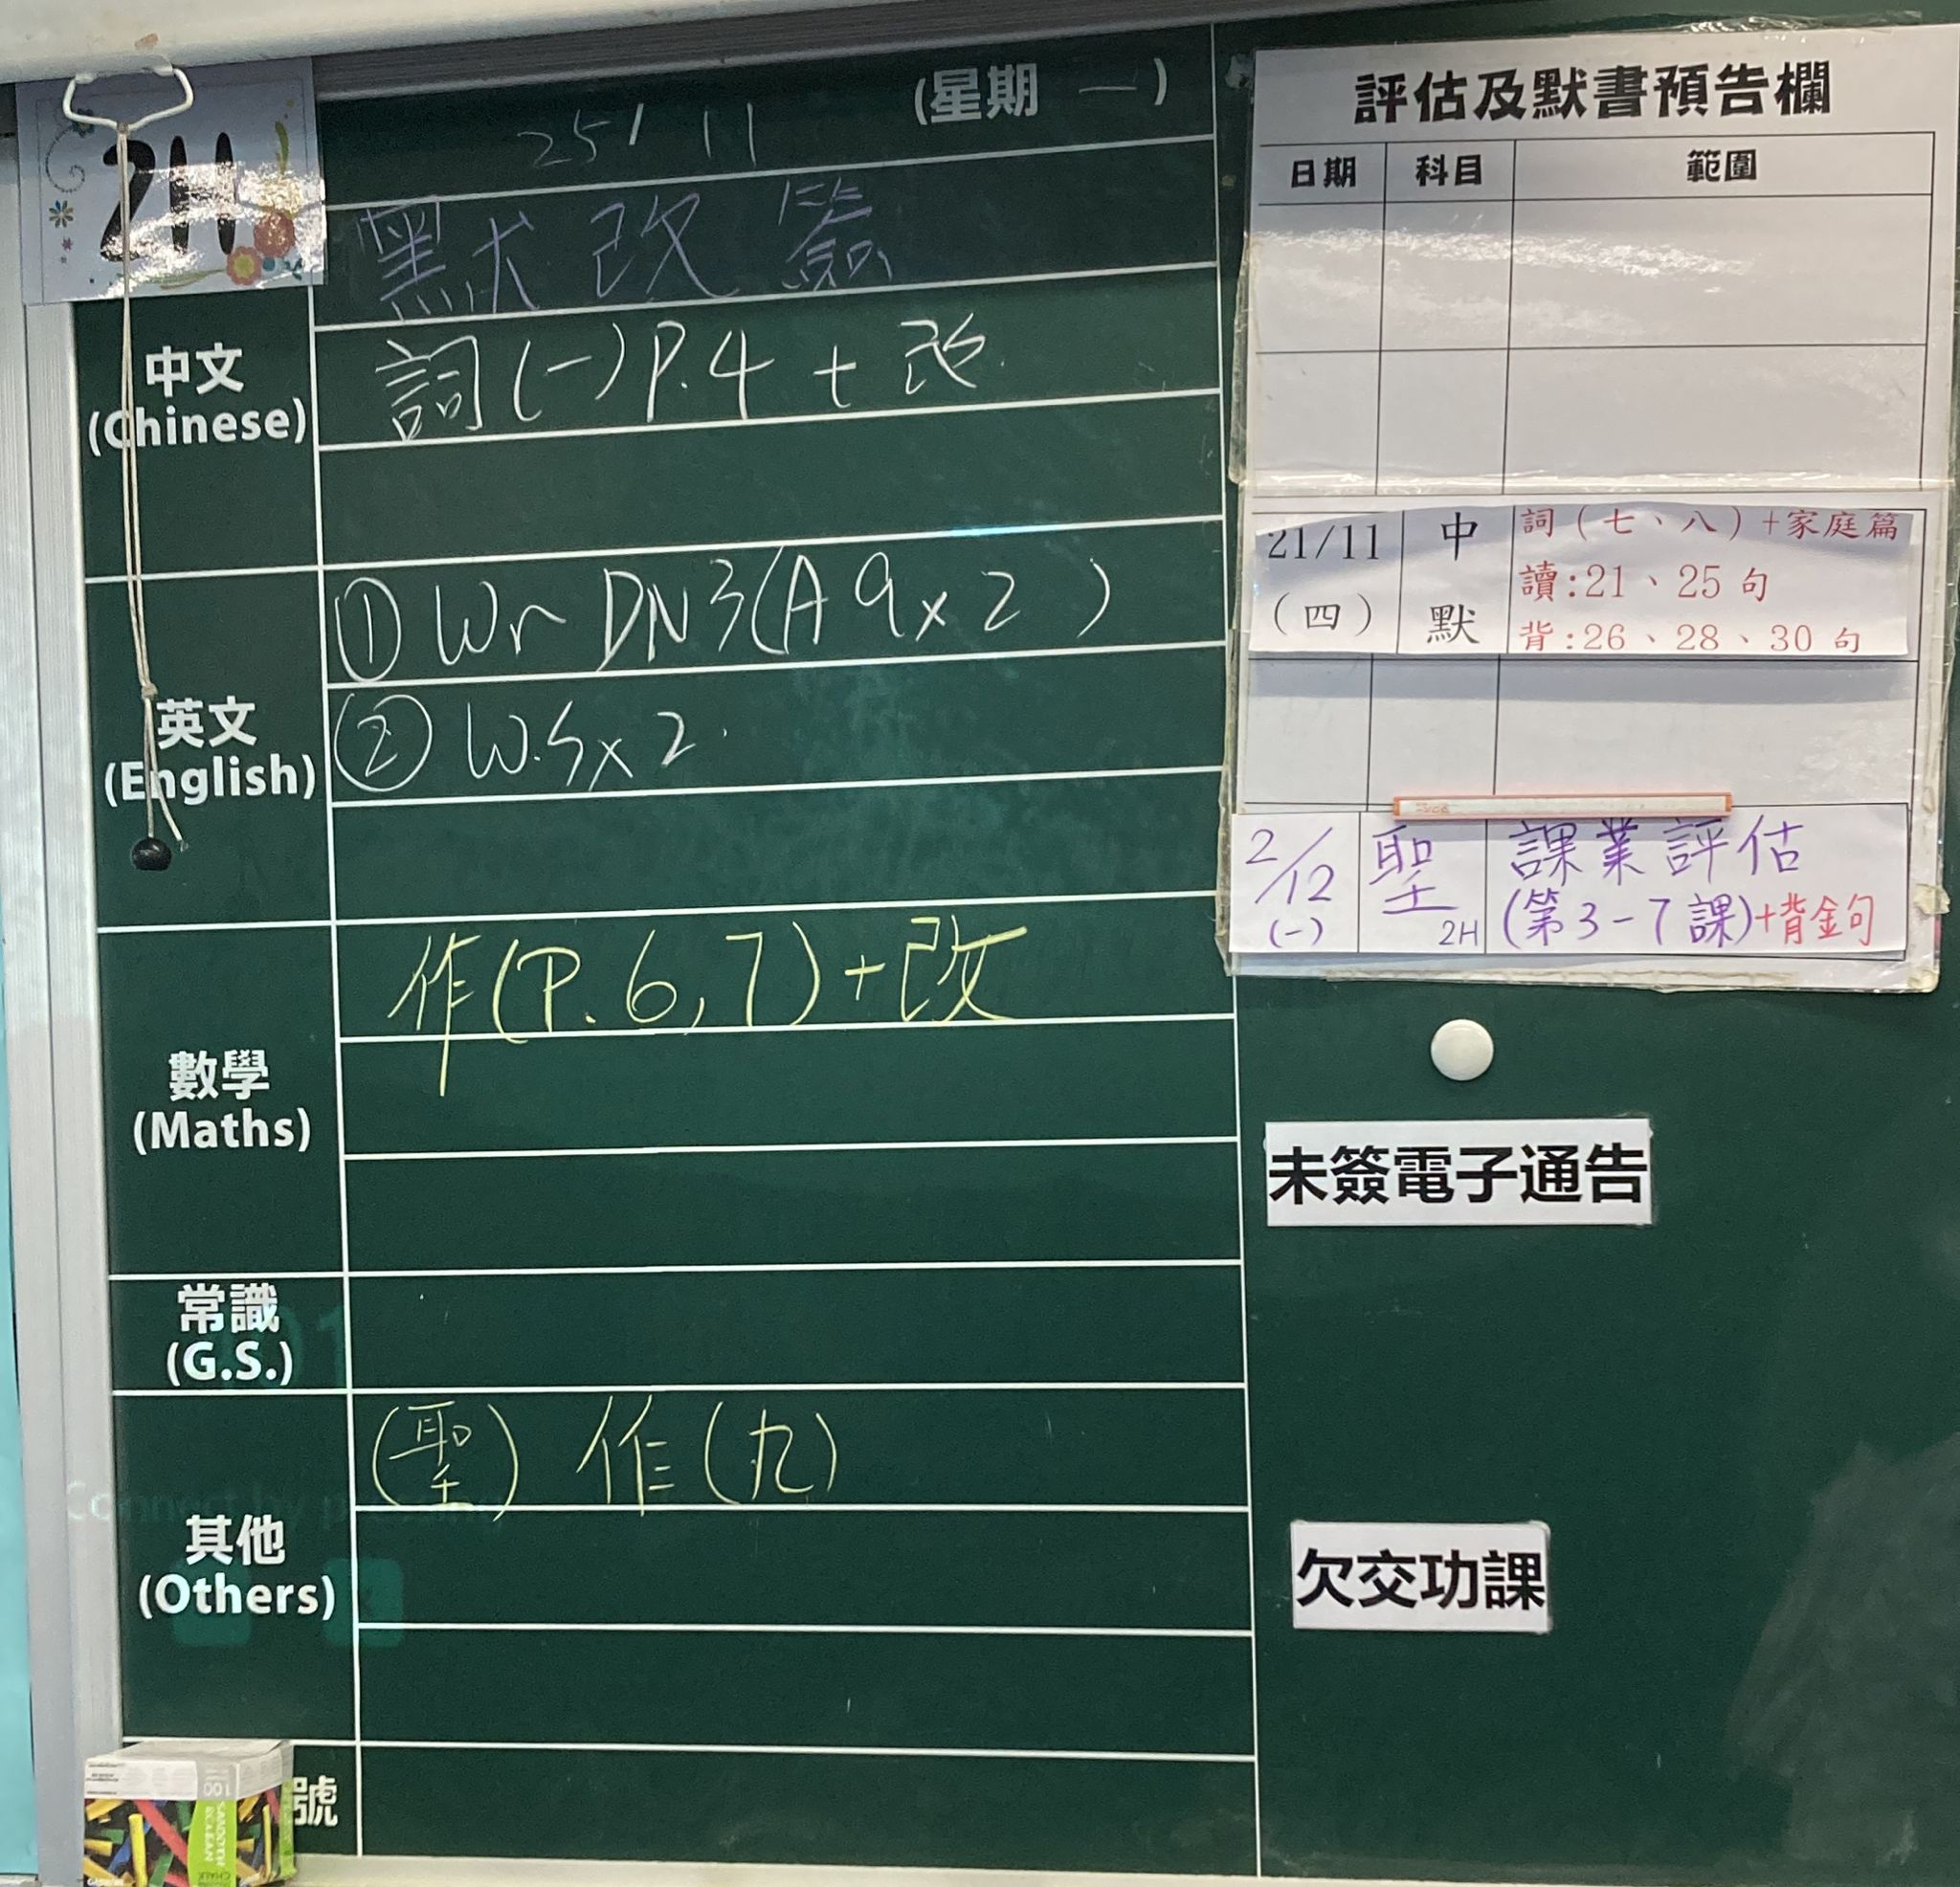 2H
25/11 (星期 一)
默 改 簽
中文
(Chinese)
詞(一)P.4 + 改
英文
(English)
① Wr DN3(A9x2)
② W.Sx2
數學
(Maths)
作(P.6,7)+改
常識
(G.S.)
其他
(Others)
(聖) 作(九)
號
評估及默書預告欄
日期 科目 範圍
21/11 中 詞(七、八)+家庭篇
讀:21、25 句
(四) 默 背:26、28、30 句
2/12 聖 課業評估
(一) 2H (第3-7課)+背金句
未簽電子通告
欠交功課
100
CHALK